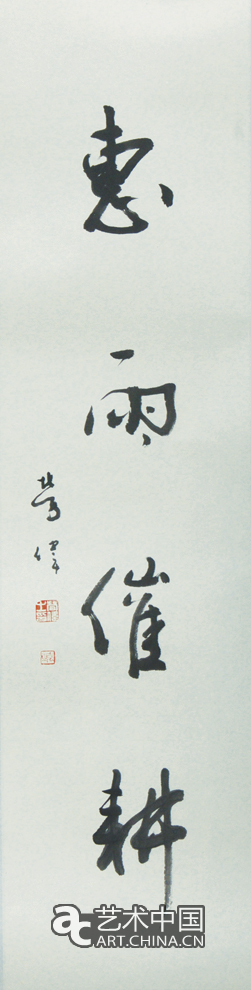 惠雨催耕
艺术中国
ART.CHINA.CN